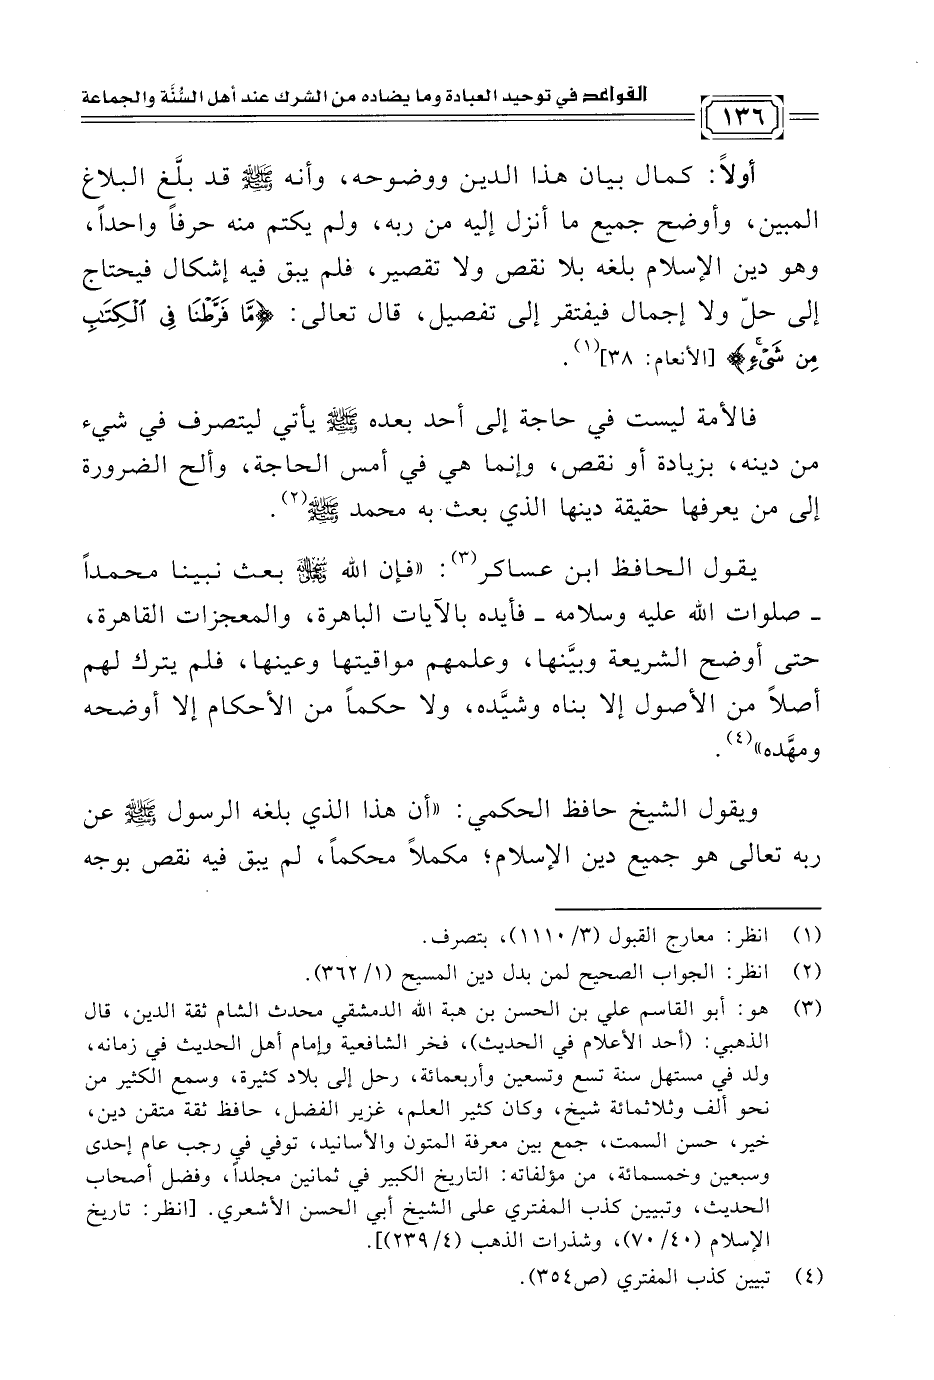 القواعد في توحيد العبادة وما يضاده من الشرك عند أهل السُّنَّة والجماعة
١٣٦
أولاً: كمال بيان هذا الدين ووضوحه، وأنه ﷺ قد بلَّغ البلاغ
المبين، وأوضح جميع ما أنزل إليه من ربه، ولم يكتم منه حرفاً واحداً،
وهو دين الإسلام بلغه بلا نقص ولا تقصير، فلم يبق فيه إشكال فيحتاج
إلى حلّ ولا إجمال فيفتقر إلى تفصيل، قال تعالى: ﴿مَّا فَرَّطْنَا فِى ٱلْكِتَٰبِ
مِن شَىْءٍ﴾ [الأنعام: ٣٨](١).
فالأمة ليست في حاجة إلى أحد بعده ﷺ يأتي ليتصرف في شيء
من دينه، بزيادة أو نقص، وإنما هي في أمس الحاجة، وألح الضرورة
إلى من يعرفها حقيقة دينها الذي بعث به محمد ﷺ(٢).
يقول الحافظ ابن عساكر(٣): «فإن الله ﷻ بعث نبينا محمداً
ـ صلوات الله عليه وسلامه ـ فأيده بالآيات الباهرة، والمعجزات القاهرة،
حتى أوضح الشريعة وبيَّنها، وعلمهم مواقيتها وعينها، فلم يترك لهم
أصلاً من الأصول إلا بناه وشيَّده، ولا حكماً من الأحكام إلا أوضحه
ومهَّده»(٤).
ويقول الشيخ حافظ الحكمي: «أن هذا الذي بلغه الرسول ﷺ عن
ربه تعالى هو جميع دين الإسلام؛ مكملاً محكماً، لم يبق فيه نقص بوجه
(١) انظر: معارج القبول (٣/ ١١١٠)، بتصرف.
(٢) انظر: الجواب الصحيح لمن بدل دين المسيح (١/ ٣٦٢).
(٣) هو: أبو القاسم علي بن الحسن بن هبة الله الدمشقي محدث الشام ثقة الدين، قال
الذهبي: (أحد الأعلام في الحديث)، فخر الشافعية وإمام أهل الحديث في زمانه،
ولد في مستهل سنة تسع وتسعين وأربعمائة، رحل إلى بلاد كثيرة، وسمع الكثير من
نحو ألف وثلاثمائة شيخ، وكان كثير العلم، غزير الفضل، حافظ ثقة متقن دين،
خير، حسن السمت، جمع بين معرفة المتون والأسانيد، توفي في رجب عام إحدى
وسبعين وخمسمائة، من مؤلفاته: التاريخ الكبير في ثمانين مجلداً، وفضل أصحاب
الحديث، وتبيين كذب المفتري على الشيخ أبي الحسن الأشعري. [انظر: تاريخ
الإسلام (٤٠/ ٧٠)، وشذرات الذهب (٤/ ٢٣٩)].
(٤) تبيين كذب المفتري (ص٣٥٤).